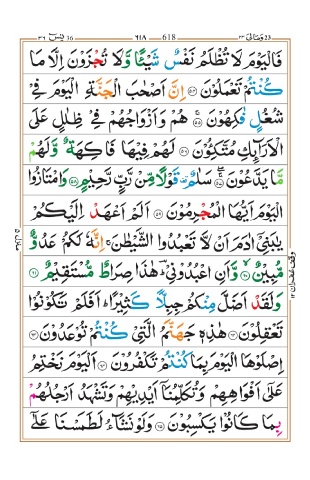 يٰسٓ ٣٦ ٦١٨ 618 ومالی ٢٣
فَالْيَوْمَ لَا تُظْلَمُ نَفْسٌ شَيْـًٔا وَّلَا تُجْزَوْنَ اِلَّا مَا
كُنْتُمْ تَعْمَلُوْنَ ۝٥٤ اِنَّ اَصْحٰبَ الْجَنَّةِ الْيَوْمَ فِيْ
شُغُلٍ فٰكِهُوْنَ ۝٥٥ هُمْ وَاَزْوَاجُهُمْ فِيْ ظِلٰلٍ عَلَى
الْاَرَآئِكِ مُتَّكِـُٔوْنَ ۝٥٦ لَهُمْ فِيْهَا فَاكِهَةٌ وَّلَهُمْ
مَّا يَدَّعُوْنَ ۝٥٧ سَلٰمٌ قَوْلًا مِّنْ رَّبٍّ رَّحِيْمٍ ۝٥٨ وَامْتَازُوا
الْيَوْمَ اَيُّهَا الْمُجْرِمُوْنَ ۝٥٩ اَلَمْ اَعْهَدْ اِلَيْكُمْ
يٰبَنِيْٓ اٰدَمَ اَنْ لَّا تَعْبُدُوا الشَّيْطٰنَ ۚ اِنَّهٗ لَكُمْ عَدُوٌّ
مُّبِيْنٌ ۝٦٠ وَّاَنِ اعْبُدُوْنِيْ ؔ هٰذَا صِرَاطٌ مُّسْتَقِيْمٌ ۝٦١
وَلَقَدْ اَضَلَّ مِنْكُمْ جِبِلًّا كَثِيْرًا ؕ اَفَلَمْ تَكُوْنُوْا
تَعْقِلُوْنَ ۝٦٢ هٰذِهٖ جَهَنَّمُ الَّتِيْ كُنْتُمْ تُوْعَدُوْنَ ۝٦٣
اِصْلَوْهَا الْيَوْمَ بِمَا كُنْتُمْ تَكْفُرُوْنَ ۝٦٤ اَلْيَوْمَ نَخْتِمُ
عَلٰٓى اَفْوَاهِهِمْ وَتُكَلِّمُنَآ اَيْدِيْهِمْ وَتَشْهَدُ اَرْجُلُهُمْ
بِمَا كَانُوْا يَكْسِبُوْنَ ۝٦٥ وَلَوْ نَشَآءُ لَطَمَسْنَا عَلٰٓى
وقف غفران ١٢